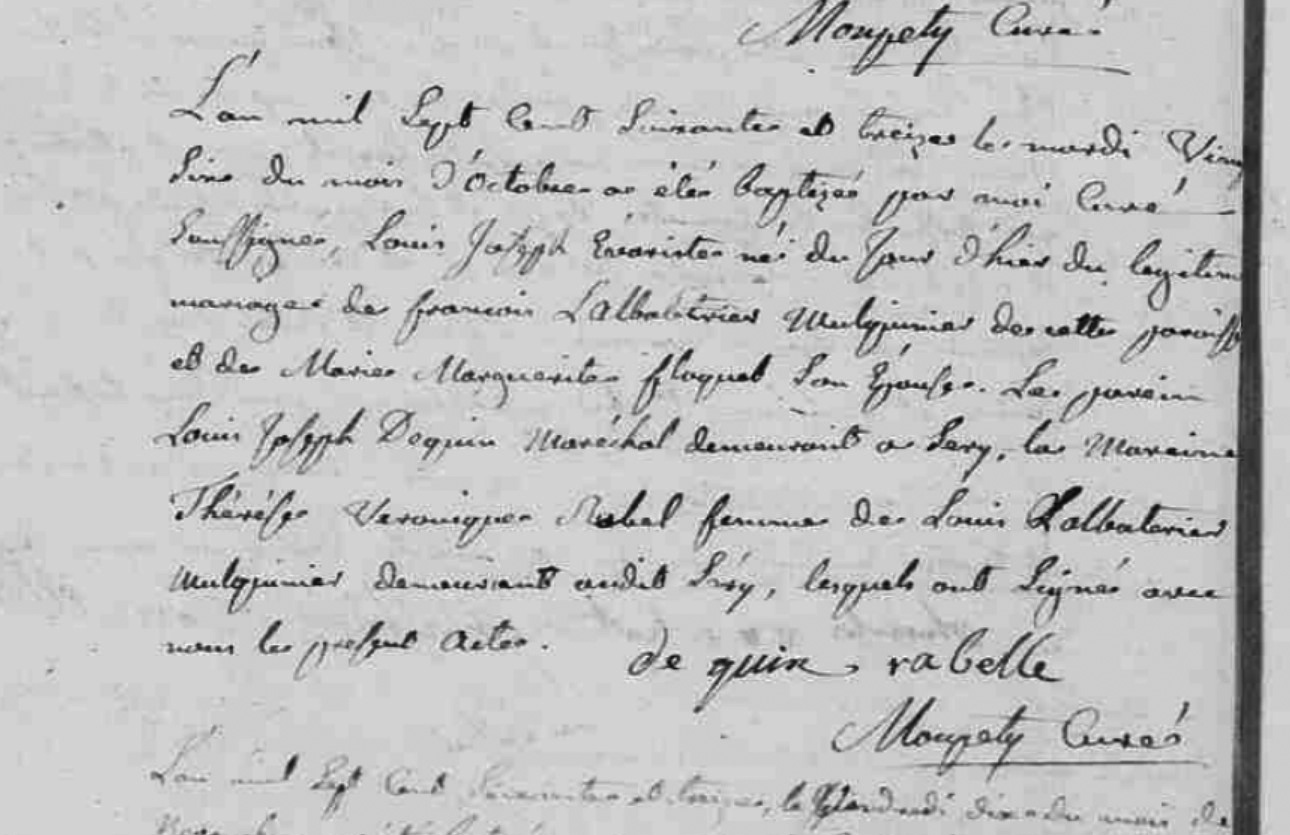 Moupety Curé
L'an mil Sept Cent Soixante et treize le mardi Vingt
Sixe du mois d'Octobre a été baptizé par moi Curé
Soussigné, Louis Joseph Evariste né du Jour d'hier du legitime
mariage de françois Lalbaletrier Mulquinier de cette paroisse
et de Marie Marguerite floquet Son Epouse. Le parein
Louis Joseph Dequin Maréchal demeurant a Sery, la Mareine
Thérése Veronique Rabel femme de Louis Lalbaterier
Mulquinier demeurant audit Séry, lesquels ont Signé avec
nous le present Acte.
de quin rabelle
Moupety Curé
L'an mil Sept Cent Soixante et treize, le Vendredi dix du mois de